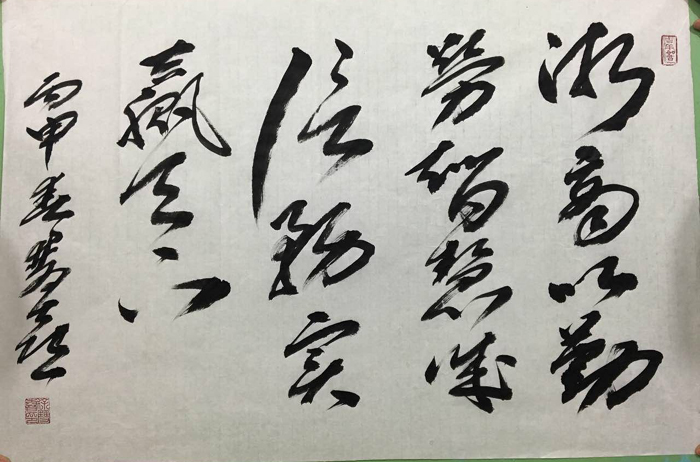 浙商以勤
劳智慧诚
信务实
赢天下
丙申春